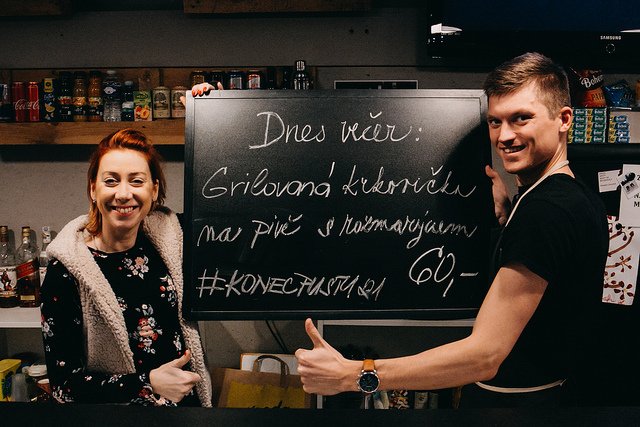 SAMSUNG
Coca-Cola
Dnes večer:
Grilovaná krkovička
na pivě s rozmarýnem
60,-
#KONECPUSTY21